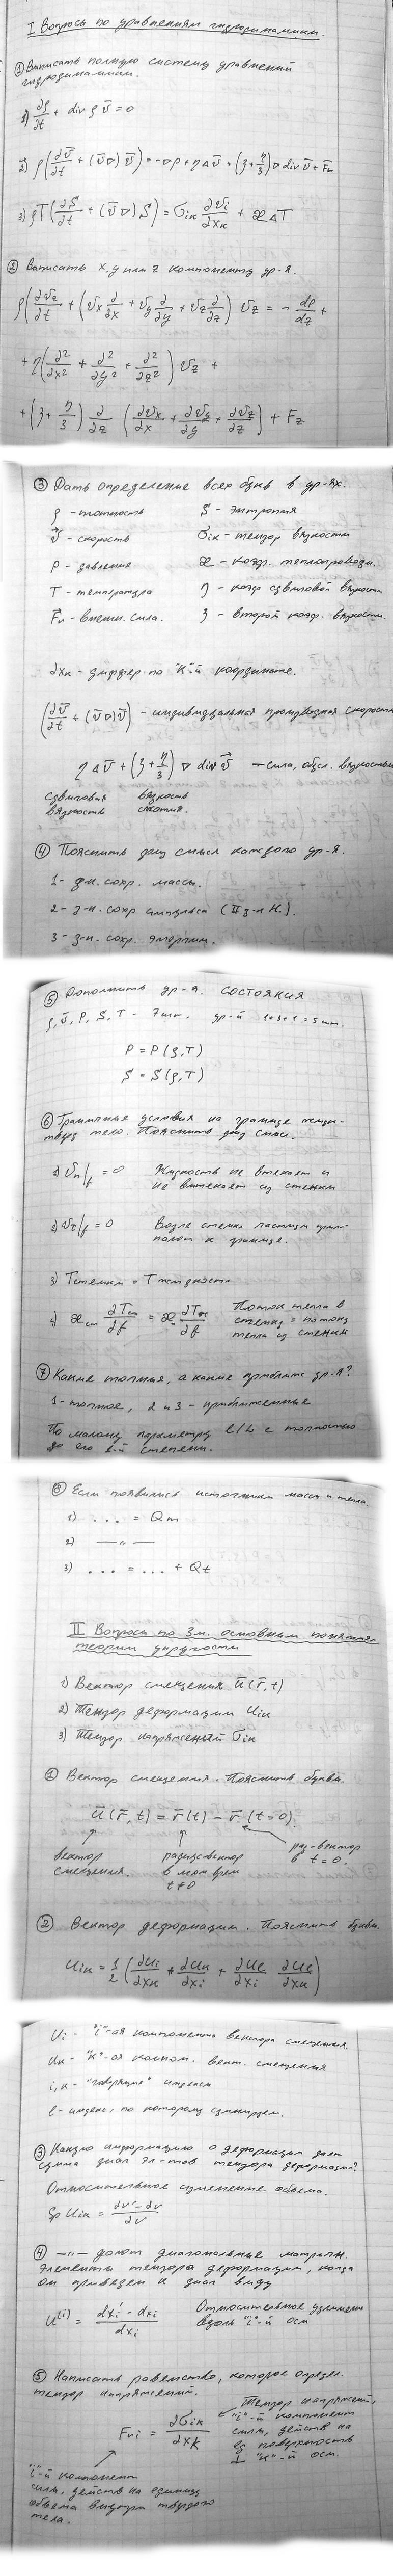 I Вопросы по уравнениям гидродинамики.
① Выписать полную систему уравнений
гидродинамики.
1) ∂ρ/∂t + div ρ v̄ = 0
2) ρ(∂v̄/∂t + (v̄∇) v̄) = -∇p + ηΔv̄ + (ξ + η/3) ∇ div v̄ + F̄v
3) ρT(∂S/∂t + (v̄∇) S) = σik ∂vi/∂xk + æΔT
② Выписать x, y или z компоненту ур-я.
ρ(∂vz/∂t + (vx ∂/∂x + vy ∂/∂y + vz ∂/∂z) vz = - dp/dz +
+ η(∂²/∂x² + ∂²/∂y² + ∂²/∂z²) vz +
+ (ξ + η/3) ∂/∂z (∂vx/∂x + ∂vy/∂y + ∂vz/∂z) + Fz
③ Дать определение всех букв в ур-ях.
ρ - плотность S - энтропия
v̄ - скорость σik - тензор вязкости
P - давление æ - коэф. теплопроводн.
T - температура η - коэф сдвиговой вязкости
F̄v - внешн. сила. ξ - второй коэф. вязкости.
∂xk - диффер по "к"-й координате.
(∂v̄/∂t + (v̄∇)v̄) - индивидуальная производная скорости
ηΔv̄ + (ξ + η/3) ∇ div v̄ - сила, обусл. вязкостью
сдвиговая вязкость
вязкость сжатия.
④ Пояснить физ смысл каждого ур-я.
1 - з-н. сохр. массы.
2 - з-н. сохр импульса (II з-н Н.).
3 - з-н. сохр. энергии.
⑤ Дополнить ур-я. состояния
ρ, v̄, P, S, T - 7 шт. ур-й 1+3+1 = 5 шт.
P = P(ρ,T)
S = S(ρ,T)
⑥ Граничные условия на границе жидк-
тверд тело. Пояснить физ смысл.
1) vn|f = 0 Жидкость не втекает и
не вытекает из стенки
2) vτ|f = 0 Возле стенки частицы прили-
пают к границе.
3) Tстенки = Tжидкости
4) æст ∂Tст/∂f = æж ∂Tж/∂f Поток тепла в
стенку = потоку
тепла из стенки
⑦ Какие точные, а какие приближ ур-я?
1 - точное, 2 и 3 - приближенные
По малому параметру l/L с точностью
до его 1-й степени.
⑧ Если появились источники массы и тепла.
1) ... = Qm
2) —"—
3) ... = ... + Qt
II Вопросы по 3м. основным понятиям
теории упругости
1) Вектор смещения ū(r̄,t)
2) Тензор деформации Uik
3) Тензор напряжений σik
① Вектор смещения. Пояснить буквы.
ū(r̄,t) = r̄(t) - r̄(t=0)
вектор радиусвектор рад-вектор
смещения. в мом врем в t=0.
t≠0
② Вектор деформации. Пояснить буквы
Uik = 1/2 (∂Ui/∂xk + ∂Uk/∂xi + ∂Ul/∂xi ∂Ul/∂xk)
Ui - "i"-ая компонента вектора смещения.
Uk - "к"-ая компон. вект. смещения
i, k - "говорящие" индексы
l - индекс, по которому суммируем.
③ Какую информацию о деформации дает
сумма диаг эл-тов тензора деформации?
Относительное изменение объема.
Sp Uik = (dv' - dv)/dv
④ —"— дают диагональные матричн.
элементы тензора деформации, когда
он приведен к диаг виду
U⁽ⁱ⁾ = (dxi' - dxi)/dxi Относительное удлинение
вдоль "i"-й оси
⑤ Написать равенство, которое определ.
тензор напряжений.
Fvi = ∂σik/∂xk
Тензор напряжений,
"i"-й компонент
силы, действ на
ед поверхность
⊥ "к"-й оси.
"i"-й компонент
силы, действ на единицу
объема внутри твердого
тела.